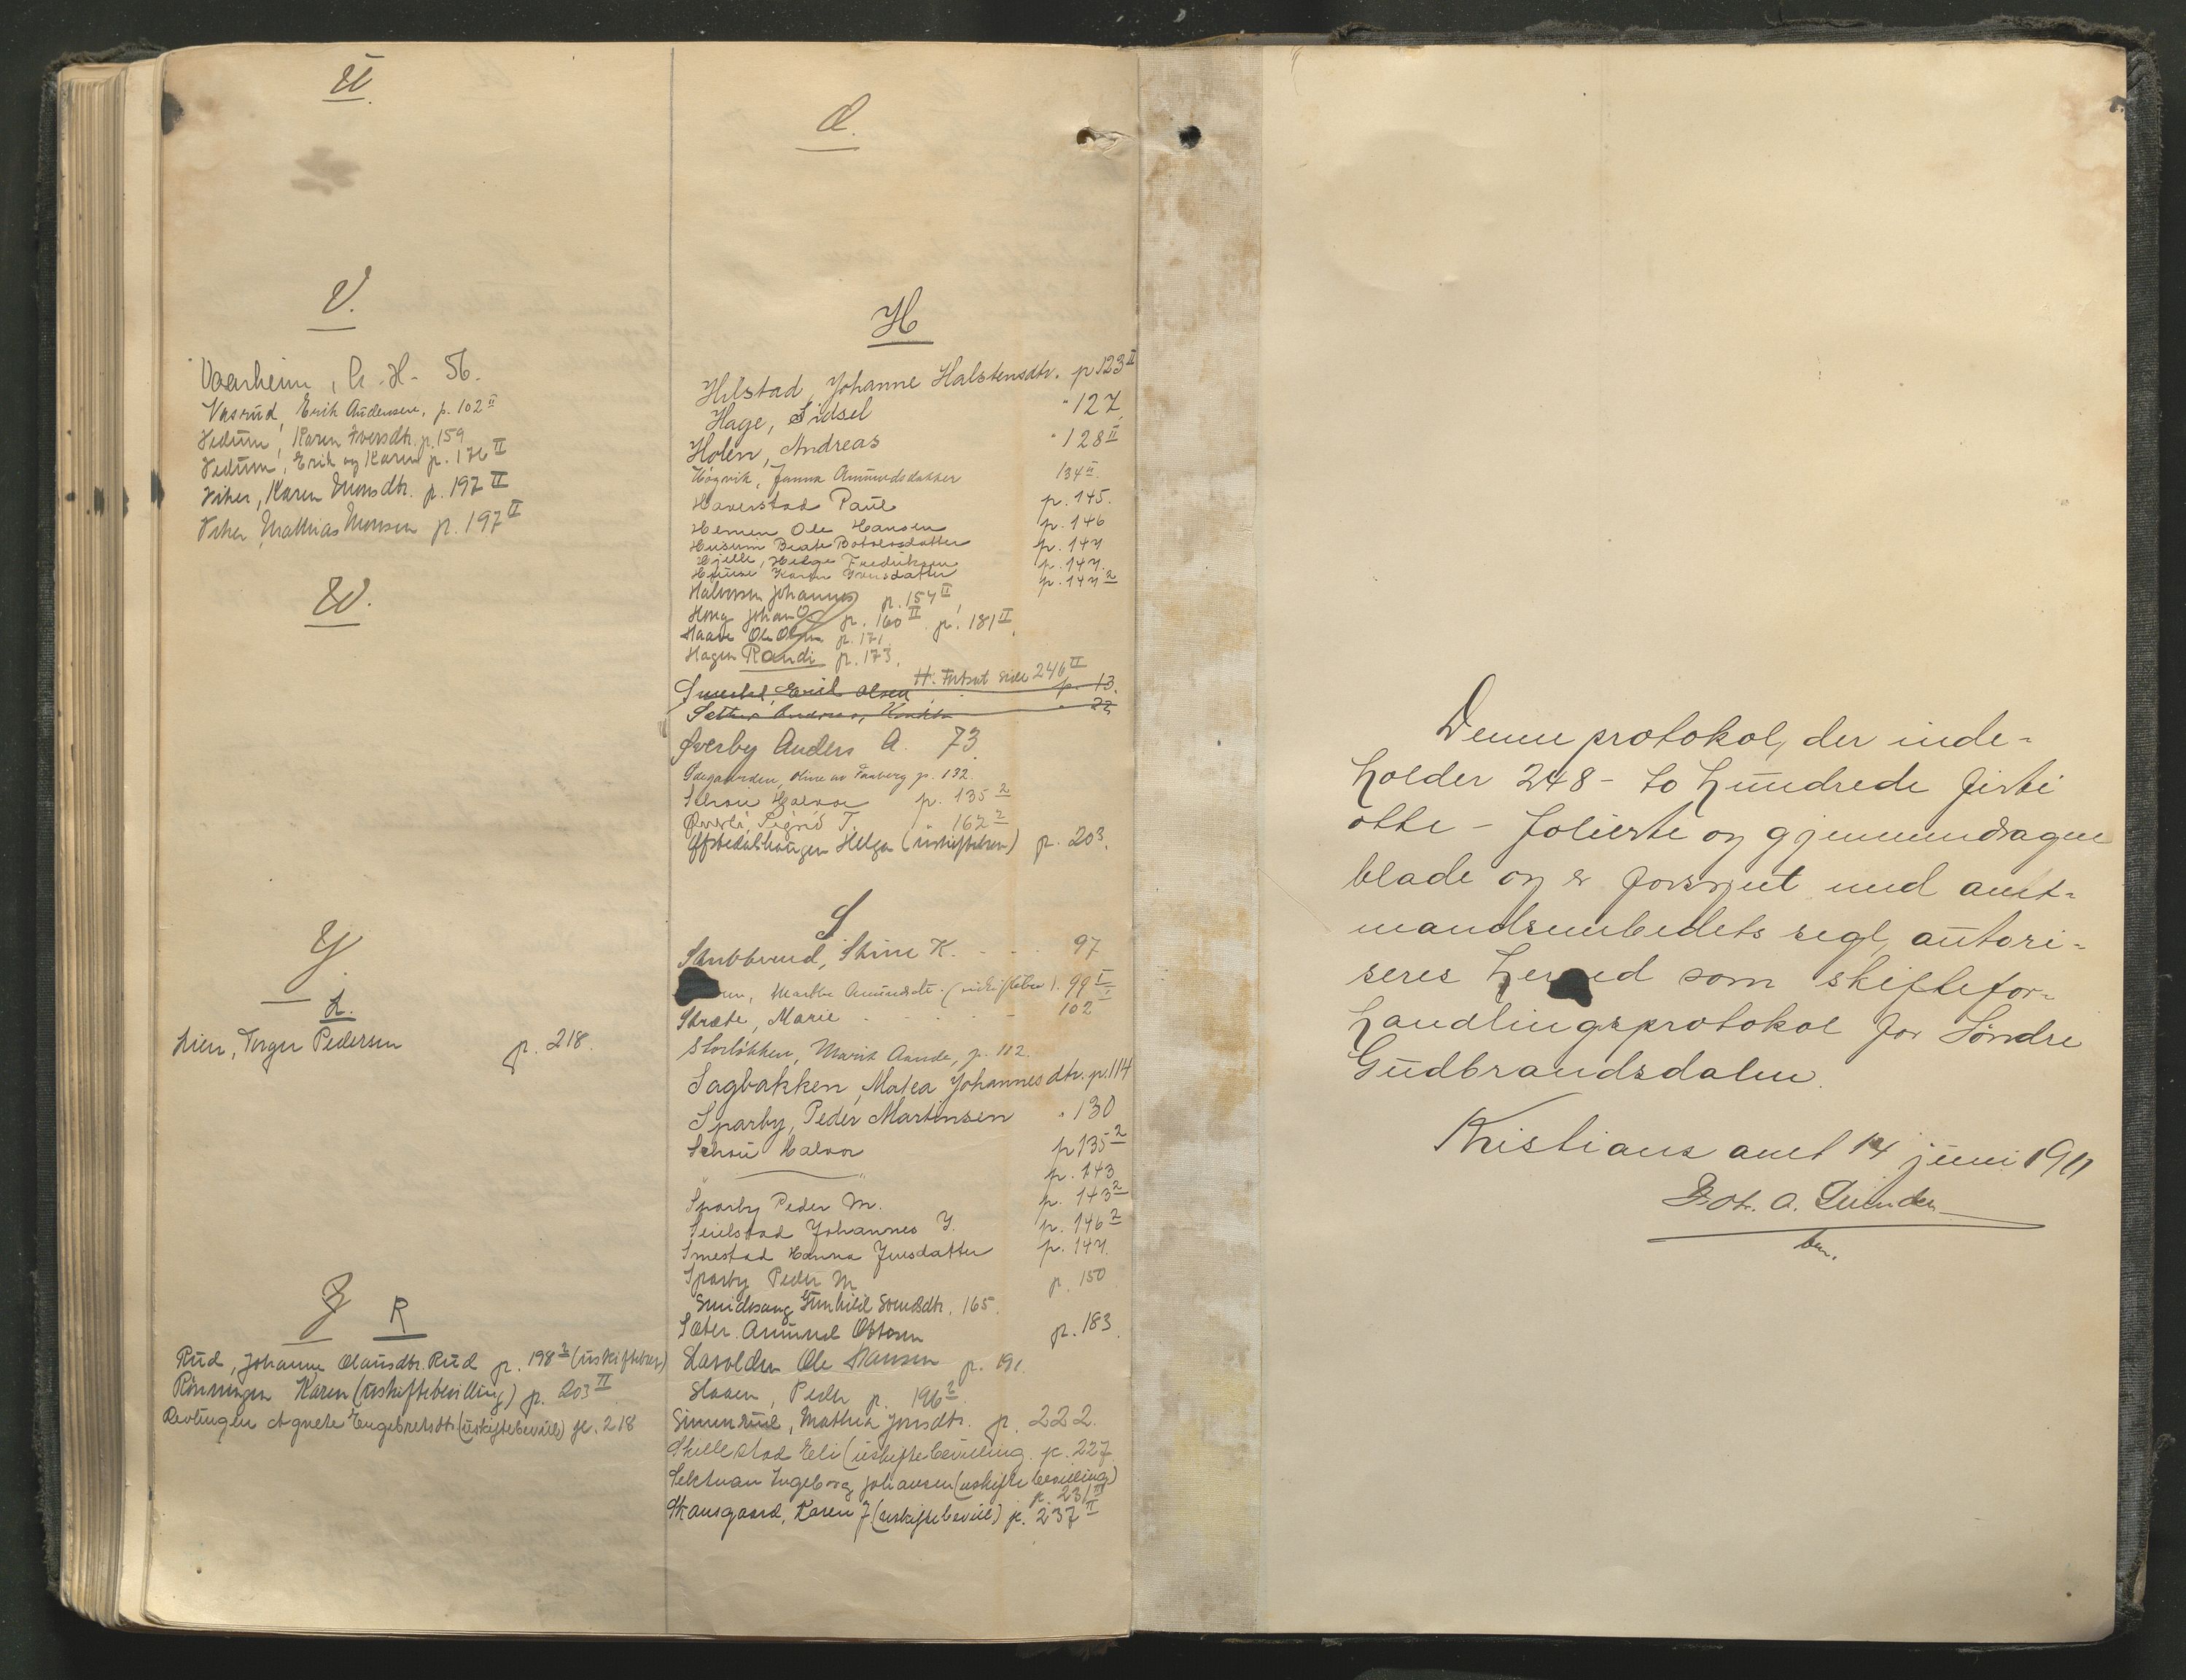 U.
V.
Vaarheim, A. H. 56.
Vasrud, Erik Andersen, p. 102 II
Vedum, Karen Iversdtr. p. 159
Vedum, Erik og Karen p. 176 II
Viker, Karen Monsdtr. p. 197 II
Viker, Mathias Monsen p. 197 II
W.
Y.
L.
Lien, Torger Pedersen p. 218.
Z R
Rud, Johanne Olausdtr. Rud p. 198 2 (uskiftebev)
Rönningen Karen (uskiftebevilling) p. 203 II
Agnete Engebretsdtr (uskiftebevill) p. 218
Ø.
H
Hilstad, Johanne Halstensdtr. p 123 II
Hage, Sidsel " 127
Holen, Andreas " 128 II
Högvik, Janna Amundsdatter 134 II
Haverstad Paul p. 145.
Hemen Ole Hansen p. 146
Husum Beate p. 147
Gjelle, Helge Fredriksen p. 147.
Karen Iversdatter p. 147 2
Halvorsen Johannes p. 157 II
Haug Johan O p. 160 II p. 181 II
Haave Ole Olsen p. 171.
Hagen Randi p. 173.
H. Fortsat side 246 II
Smestad, Emil Olsen p. 13.
Sether Andreas, " 22
Øverby Anders A. 73
Ödegaarden, Oline av Faaberg p. 132.
Schou Halvor p. 135 2
Øverli, Sigrid T. " 162 2
Helga (uskiftebev) p. 203.
S
Stubbrud, Stine K. - - - 97
Marthe Amundsdtr. (uskiftebev). 99 I
Stræte, Marie - - - - 102 I
Storløkken, Marit Aande, p. 112.
Sagbakken, Matea Johannesdtr. p. 114
Sparby, Peder Martinsen " 130
Schou Halvor p 135 2
" " p. 143
Sparby Peder M. p. 143 2
Seielstad Johannes J. p. 146 2
Smestad Hanna Jensdatter p. 147.
Sparby Peder M p. 150
Smidesang Gunhild Svendsdtr. 165.
Sæter Amund Ottosen p. 183.
Ole Hansen p. 191.
Staaen, Peder p. 196 2
Simenrud, Mathea Jonsdtr. p. 222.
Skillestad Eli (uskiftebevilling. p. 227
Ingeborg Johansen (uskiftebevilling)
p. 231 II
Skansgaard, Karen J (uskiftebevill) p. 237 II
Denne protokol, der inde-
holder 248 - to hundrede firti
otte - folierte og gjennemdragne
blade og er forsynt med amt-
mandsembedets segl, autori-
seres herved som skiftefor-
handlingsprotokol for Søndre
Gudbrandsdalen.
Kristians amt 14 juni 1911